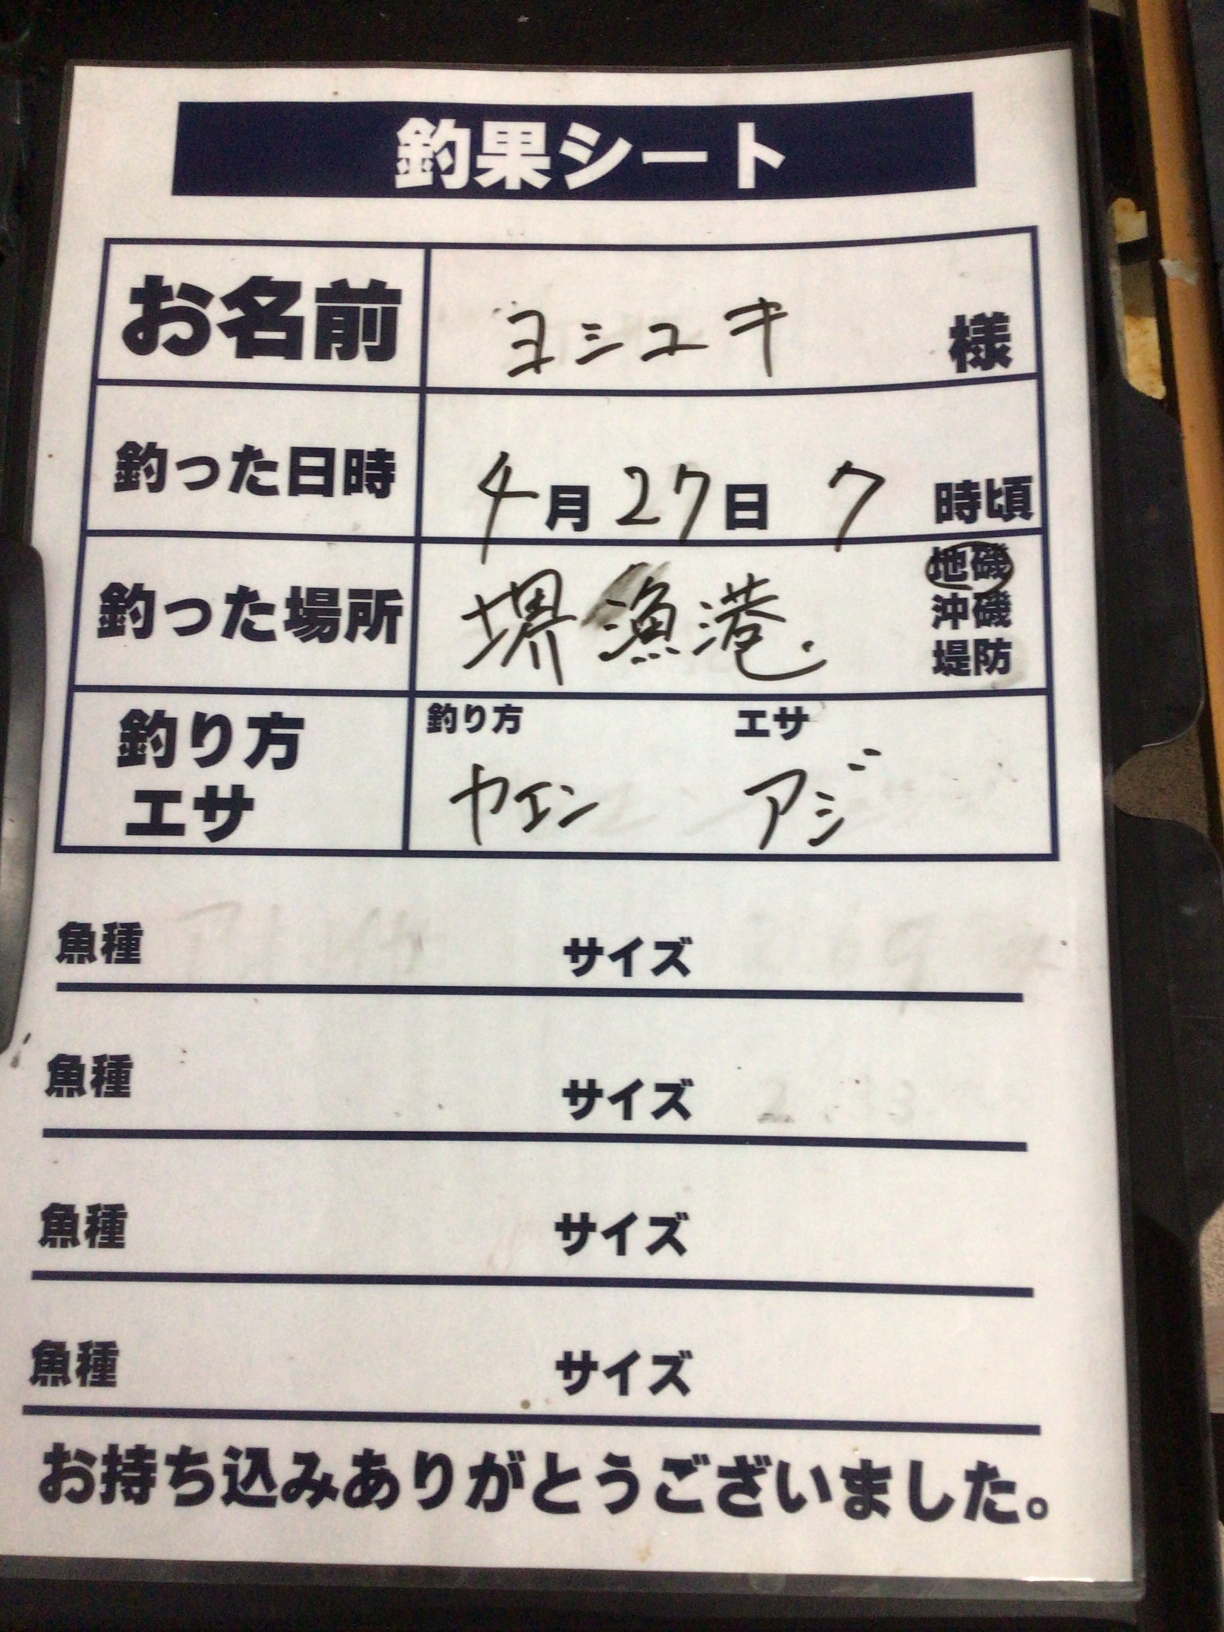 釣果シート
お名前 ヨシユキ 様
釣った日時 4月27日 7時頃
釣った場所 堺漁港 地磯
沖磯
堤防
釣り方 エサ
釣り方 ヤエン
エサ アジ
魚種 サイズ
魚種 サイズ
魚種 サイズ
魚種 サイズ
お持ち込みありがとうございました。